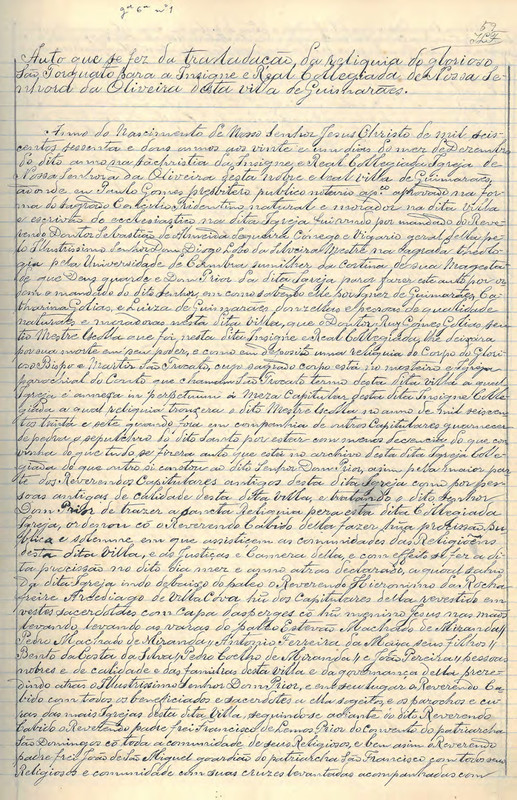 57
Auto que se fez da trasladação, da reliquia do glorioso
São Torquato para a Insigne e Real Collegiada de Nossa Se-
nhora da Oliveira desta villa de Guimarães.
Anno do Nascimento de Nosso Senhor Jesus Christo de mil seis-
centos sessenta e dous annos aos vinte e um dias do mez de Dezembro
do dito anno na sachristia da Insigne e Real Collegiada Igreja de
Nossa Senhora da Oliveira desta nobre e leal villa de Guimarães,
aonde eu Paulo Gomes presbitero publico notario apco approvado na for-
ma do sagrado Concilio Tridentino natural e morador na dita villa
e escrivão do ecclesiastico na dita Igreja fui vindo por mandado do Reve-
rendo Doutor Sebastião de Almeida Conego e Vigario geral della pe-
lo Illustrissimo Senhor Dom Diogo Lobo da Silveira Mestre na sagrada theolo-
gia pela Universidade de Coimbra sumilher da Cortina de sua Magesta-
de que Deus guarde e Dom Prior da dita Igreja para fazer este auto por vir-
com o mandado do dito senhor, em como sabendo elle por Ignez de Guimarães, Ca-
tharina Golias, e Luiza de Guimarães donzellas e pessoas de qualidade
naturaes e moradoras nesta dita villa, que o Doutor Ruy Gomes Golias, seu
tio Mestre Escola que foi, nesta dita Insigne e Real Collegiada, lhe deixara
por sua morte em seu poder, e como em deposito uma reliquia do Corpo do Glori-
oso Bispo e Martir São Trocato, cujo sagrado corpo está no mosteiro e Igreja
parochial do Couto que chamam São Trocato termo desta dita villa a qual
Igreja é annexa in perpetuum á Meza Capitular desta dita Insigne Colle-
giada a qual reliquia trouxera o dito Mestre Escola no anno de mil seiscen-
tos trinta e sete quando fora em companhia de outros Capitulares guarnecer
de pedra o sepulchro do dito santo por estar com menos decencia do que con-
vinha de que tudo se fizera auto que está no archivo desta dita Igreja Col-
legiada do que outro si constou ao dito Senhor Dom Prior, assim pela maior par-
te dos Reverendos Capitulares antigos desta dita Igreja como por pes-
soas antigas de calidade desta dita villa, e tratando o dito Senhor
Dom Prior de trazer a sancta Reliquia pera esta dita Collegiada
Igreja, ordenou cõ o Reverendo Cabido della fazer hua procissão pu-
blica e solemne, em que assistissem as communidades das Religiões
desta dita Villa, e as Justiças e Camera della, e com effeito se fez a di-
ta procissão no dito dia mez e anno atras declarado, a qual sahiu
Da dita Igreja indo debaixo do paleo o Reverendo Hieronimo da Rocha
freire Arcediago de Villa Cova hũ dos Capitulares della revestido em
vestes sacerdotaes com capa dasperges cõ hũ menino Jesus nas mãos
levando, levando as varas do paleo Estevão Machado de Miranda //
Pedro Machado de Miranda // Antonio Ferreira da Maya seus filhos //
Bento da Costa da Silva // Pedro Coelho de Miranda // e João Pereira // pessoas
nobres e de calidade e das familias desta villa e da governança della prece-
dindo atras o Illustrissimo Senhor Dom Prior, e em seu lugar o Reverendo Ca-
bido com todos os beneficiados e sacerdotes a ella sogeitos, e os parochos e cu-
ras das mais Igrejas desta dita Villa, seguindo se adiante do dito Reverendo
Cabido o Reverendo padre frei Francisco de Lemos Prior do Convento do patriarcha
São Domingos cõ toda a comunidade de seus Religiosos, e bem assim o Reverendo
padre frei João de São Miguel guardião do patriarcha São Francisco com todos seus
Religiosos e comunidade com suas cruzes levantadas acompanhadas com